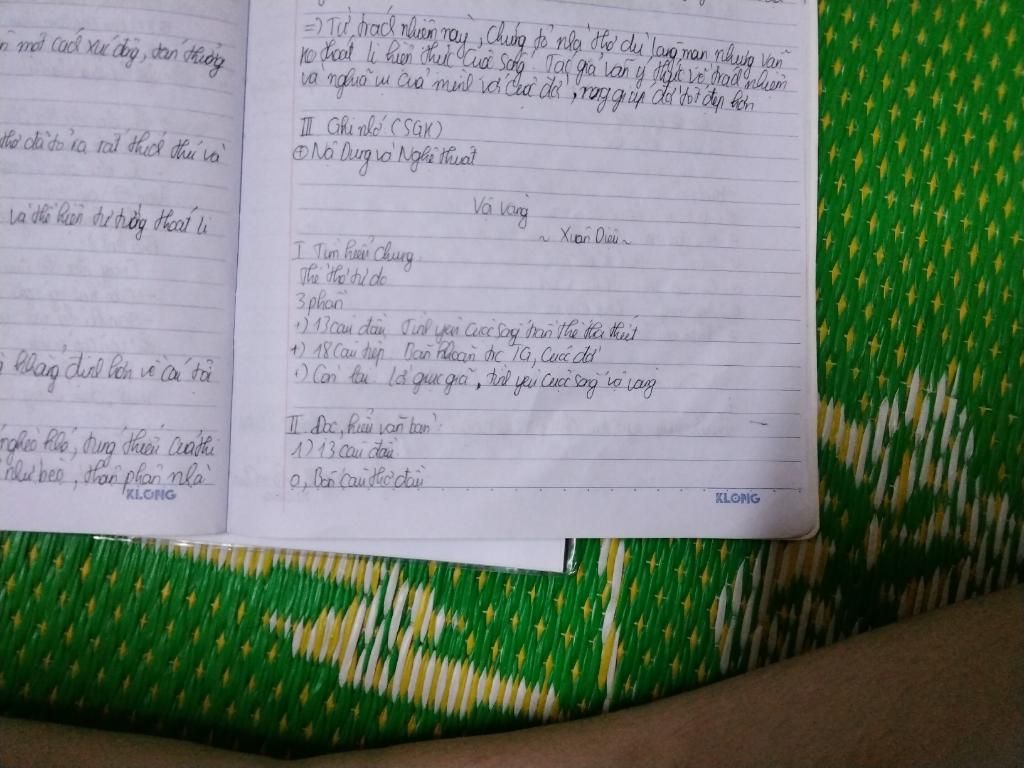 một cách xúc động, dan thường
thơ đã tỏ ra rất thích thú và
và thể hiện tư tưởng thoát li
khẳng định hơn về cái tôi
nghèo khó, dung thiếu của thi
như bèo, thân phận nhà
KLONG
=) Từ trách nhiệm này, chứng tỏ nhà thơ dù lãng mạn nhưng vẫn
ko thoát li hiện thực cuộc sống. Tác giả vẫn ý thức về trách nhiệm
và nghĩa vụ của mình với cuộc đời, mong giúp đời tốt đẹp hơn
III Ghi nhớ (SGK)
+ Nội Dung và Nghệ thuật
Vội vàng
~ Xuân Diệu ~
I Tìm hiểu chung
Thể thơ tự do
3 phần
+) 13 câu đầu Tình yêu cuộc sống trần thế tha thiết
+) 18 câu tiếp Băn khoăn tc TG, cuộc đời
+) Còn lại lời giục giã, tình yêu cuộc sống vội vàng
II Đọc, hiểu văn bản:
1) 13 câu đầu
a, Bốn câu thơ đầu
KLONG